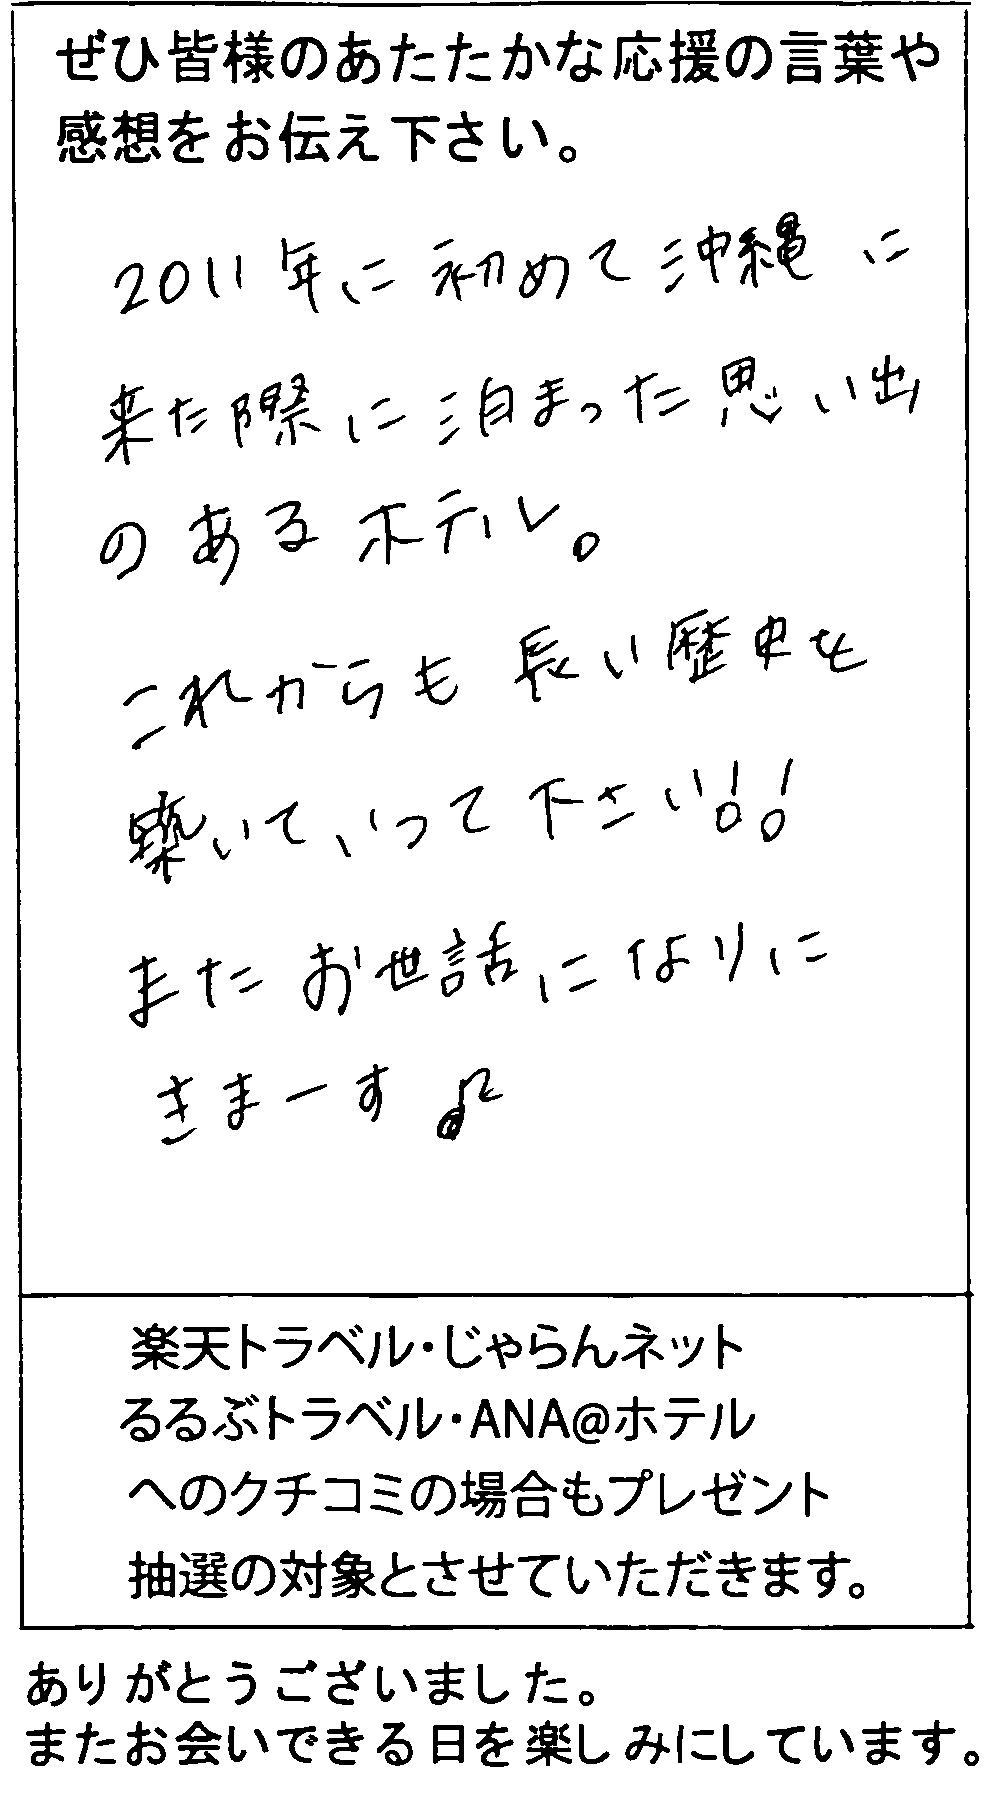 ぜひ皆様のあたたかな応援の言葉や
感想をお伝え下さい。
2011年に初めて沖縄に
来た際に泊まった思い出
のあるホテル。
これからも長い歴史を
築いていって下さい!!
またお世話になりに
きまーす♪
楽天トラベル・じゃらんネット
るるぶトラベル・ANA@ホテル
へのクチコミの場合もプレゼント
抽選の対象とさせていただきます。
ありがとうございました。
またお会いできる日を楽しみにしています。